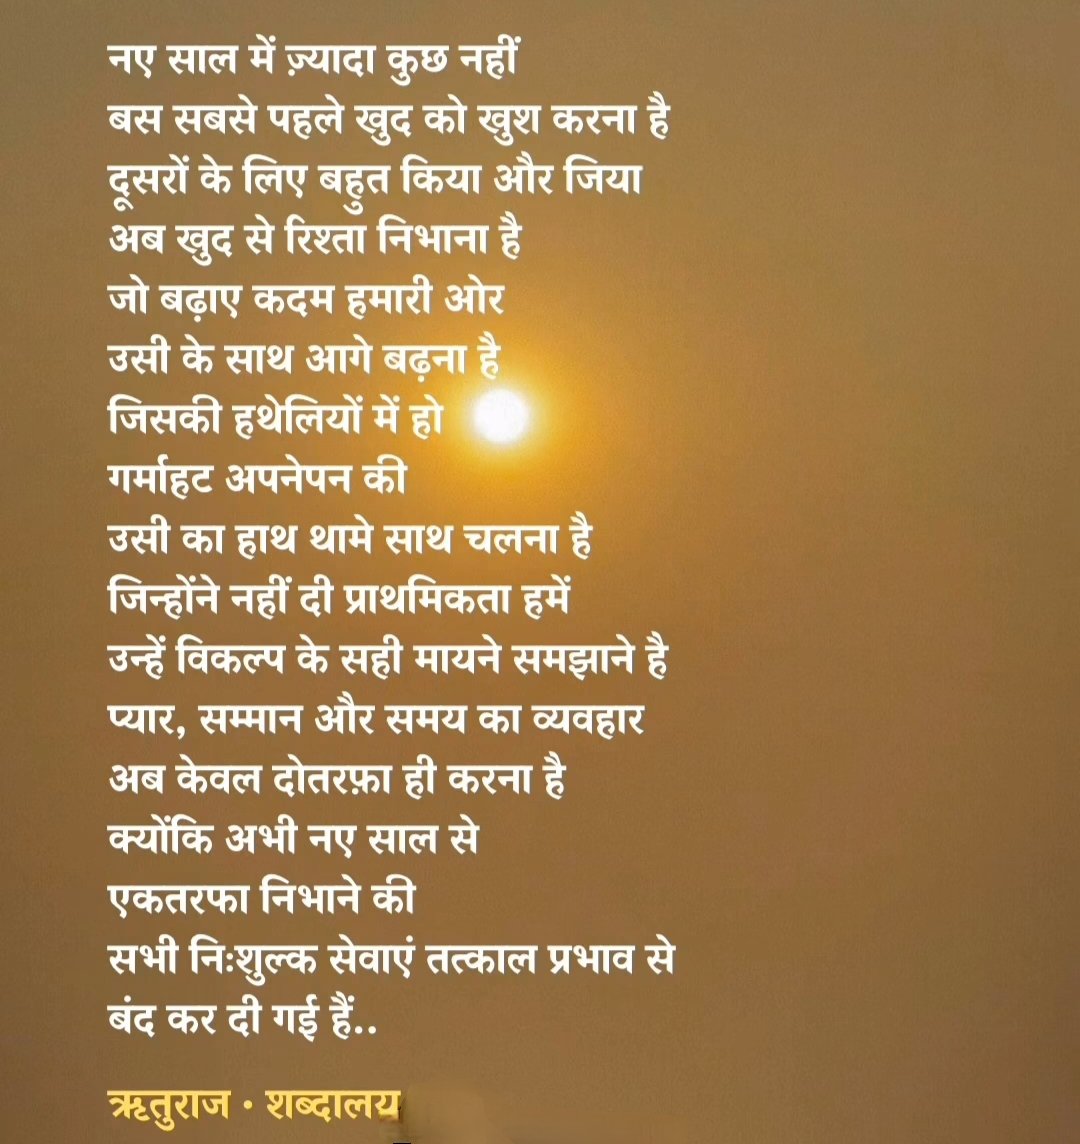 नए साल में ज़्यादा कुछ नहीं
बस सबसे पहले खुद को खुश करना है
दूसरों के लिए बहुत किया और जिया
अब खुद से रिश्ता निभाना है
जो बढ़ाए कदम हमारी ओर
उसी के साथ आगे बढ़ना है
जिसकी हथेलियों में हो
गर्माहट अपनेपन की
उसी का हाथ थामे साथ चलना है
जिन्होंने नहीं दी प्राथमिकता हमें
उन्हें विकल्प के सही मायने समझाने है
प्यार, सम्मान और समय का व्यवहार
अब केवल दोतरफ़ा ही करना है
क्योंकि अभी नए साल से
एकतरफा निभाने की
सभी निःशुल्क सेवाएं तत्काल प्रभाव से
बंद कर दी गई हैं..
ऋतुराज • शब्दालय